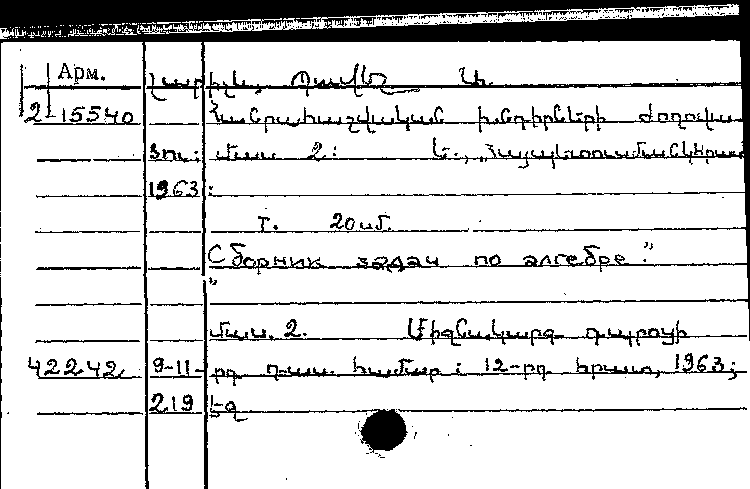 Арм. Լարիչև, Պավել Ա.
2-15540 Հանրահաշվական խնդիրների ժողովա
ծու: Մաս 2: Ե., „Հայպետուսմանկհրատ
1963:
Т. 20 սմ.
Сборник задач по алгебре."
"
Մաս. 2. Միջնակարգ դպրոցի
42242 9-11-րդ դաս. համար: 12-րդ հրատ, 1963;
219 էջ